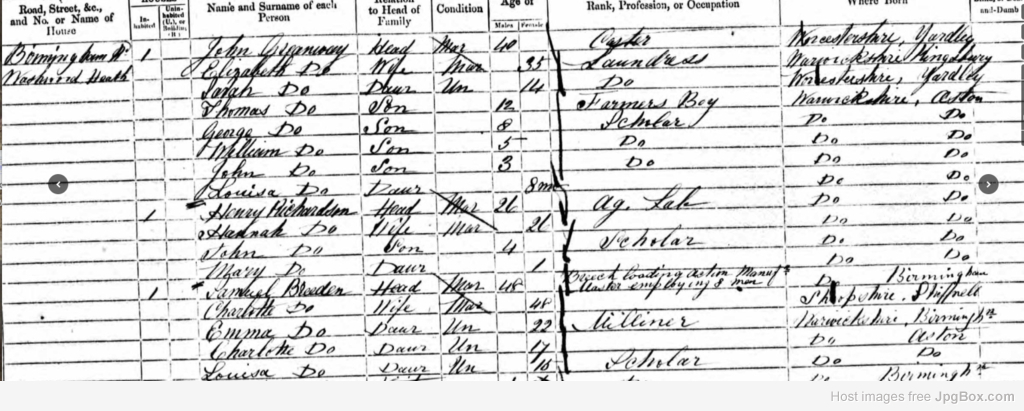 Road, Street, &c., and No. or Name of House
In-habited
Name and Surname of each Person
Relation to Head of Family
Condition
Age of
Males Females
Rank, Profession, or Occupation
Where Born
and-Dumb
Birmingham Rd 1 John Greenway Head Mar 40 Carter Worcestershire, Yardley
Washwood Heath Elizabeth Do Wife Mar 35 Laundress Warwickshire, Kingsbury
Sarah Do Daur Un 14 Do Worcestershire, Yardley
Thomas Do Son 12 Farmers Boy Warwickshire, Aston
George Do Son 8 Scholar Do Do
William Do Son 5 Do Do Do
John Do Son 3 Do Do Do
Louisa Do Daur 8m Do Do
1 Henry Richardson Head Mar 26 Ag. Lab Do Do
Hannah Do Wife Mar 26 Do Do
John Do Son 4 Scholar Do Do
Mary Do Daur 1 Do Do
1 Samuel Breeden Head Mar 48 Breech loading action Manuf Master employing 8 men Do Birmingham
Charlotte Do Wife Mar 48 Shropshire, Shiffnell
Emma Do Daur Un 22 Milliner Warwickshire, Birmingh
Charlotte Do Daur Un 17 Do Aston
Louisa Do Daur Un Scholar Do Do
Birmingh
Host images free JpgBox.com